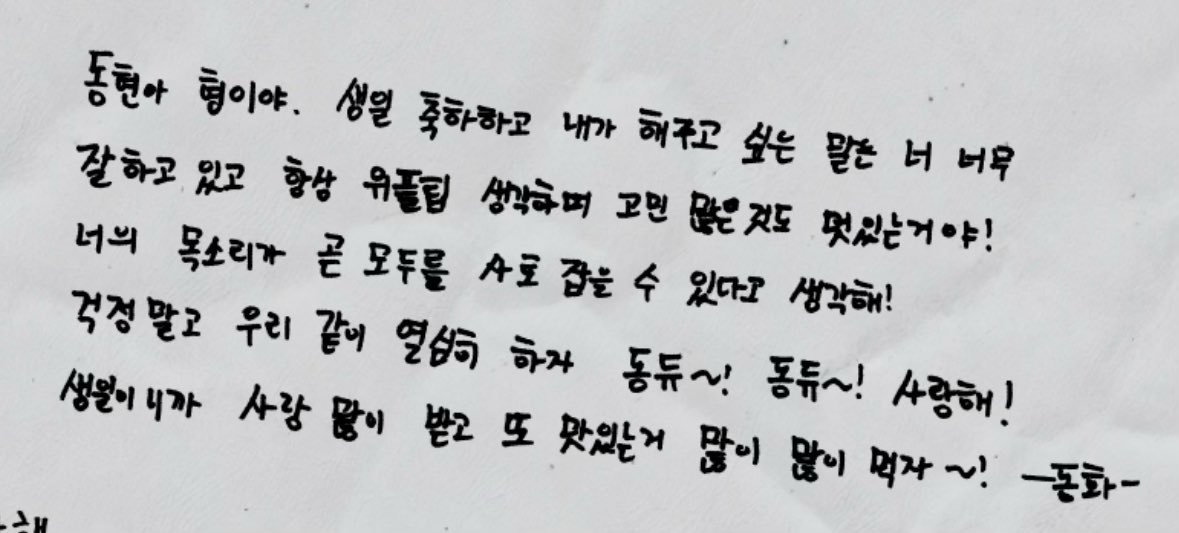 동현아 형이야. 생일 축하하고 내가 해주고 싶은 말은 너 너무
잘하고 있고 항상 위플팁 생각하며 고민 많은것도 멋있는거야!
너의 목소리가 곧 모두를 사로 잡을 수 있다고 생각해!
걱정말고 우리 같이 열심히 하자 동듀~! 동듀~! 사랑해!
생일이니까 사랑 많이 받고 또 맛있는거 많이 많이 먹자~! -동화-
해